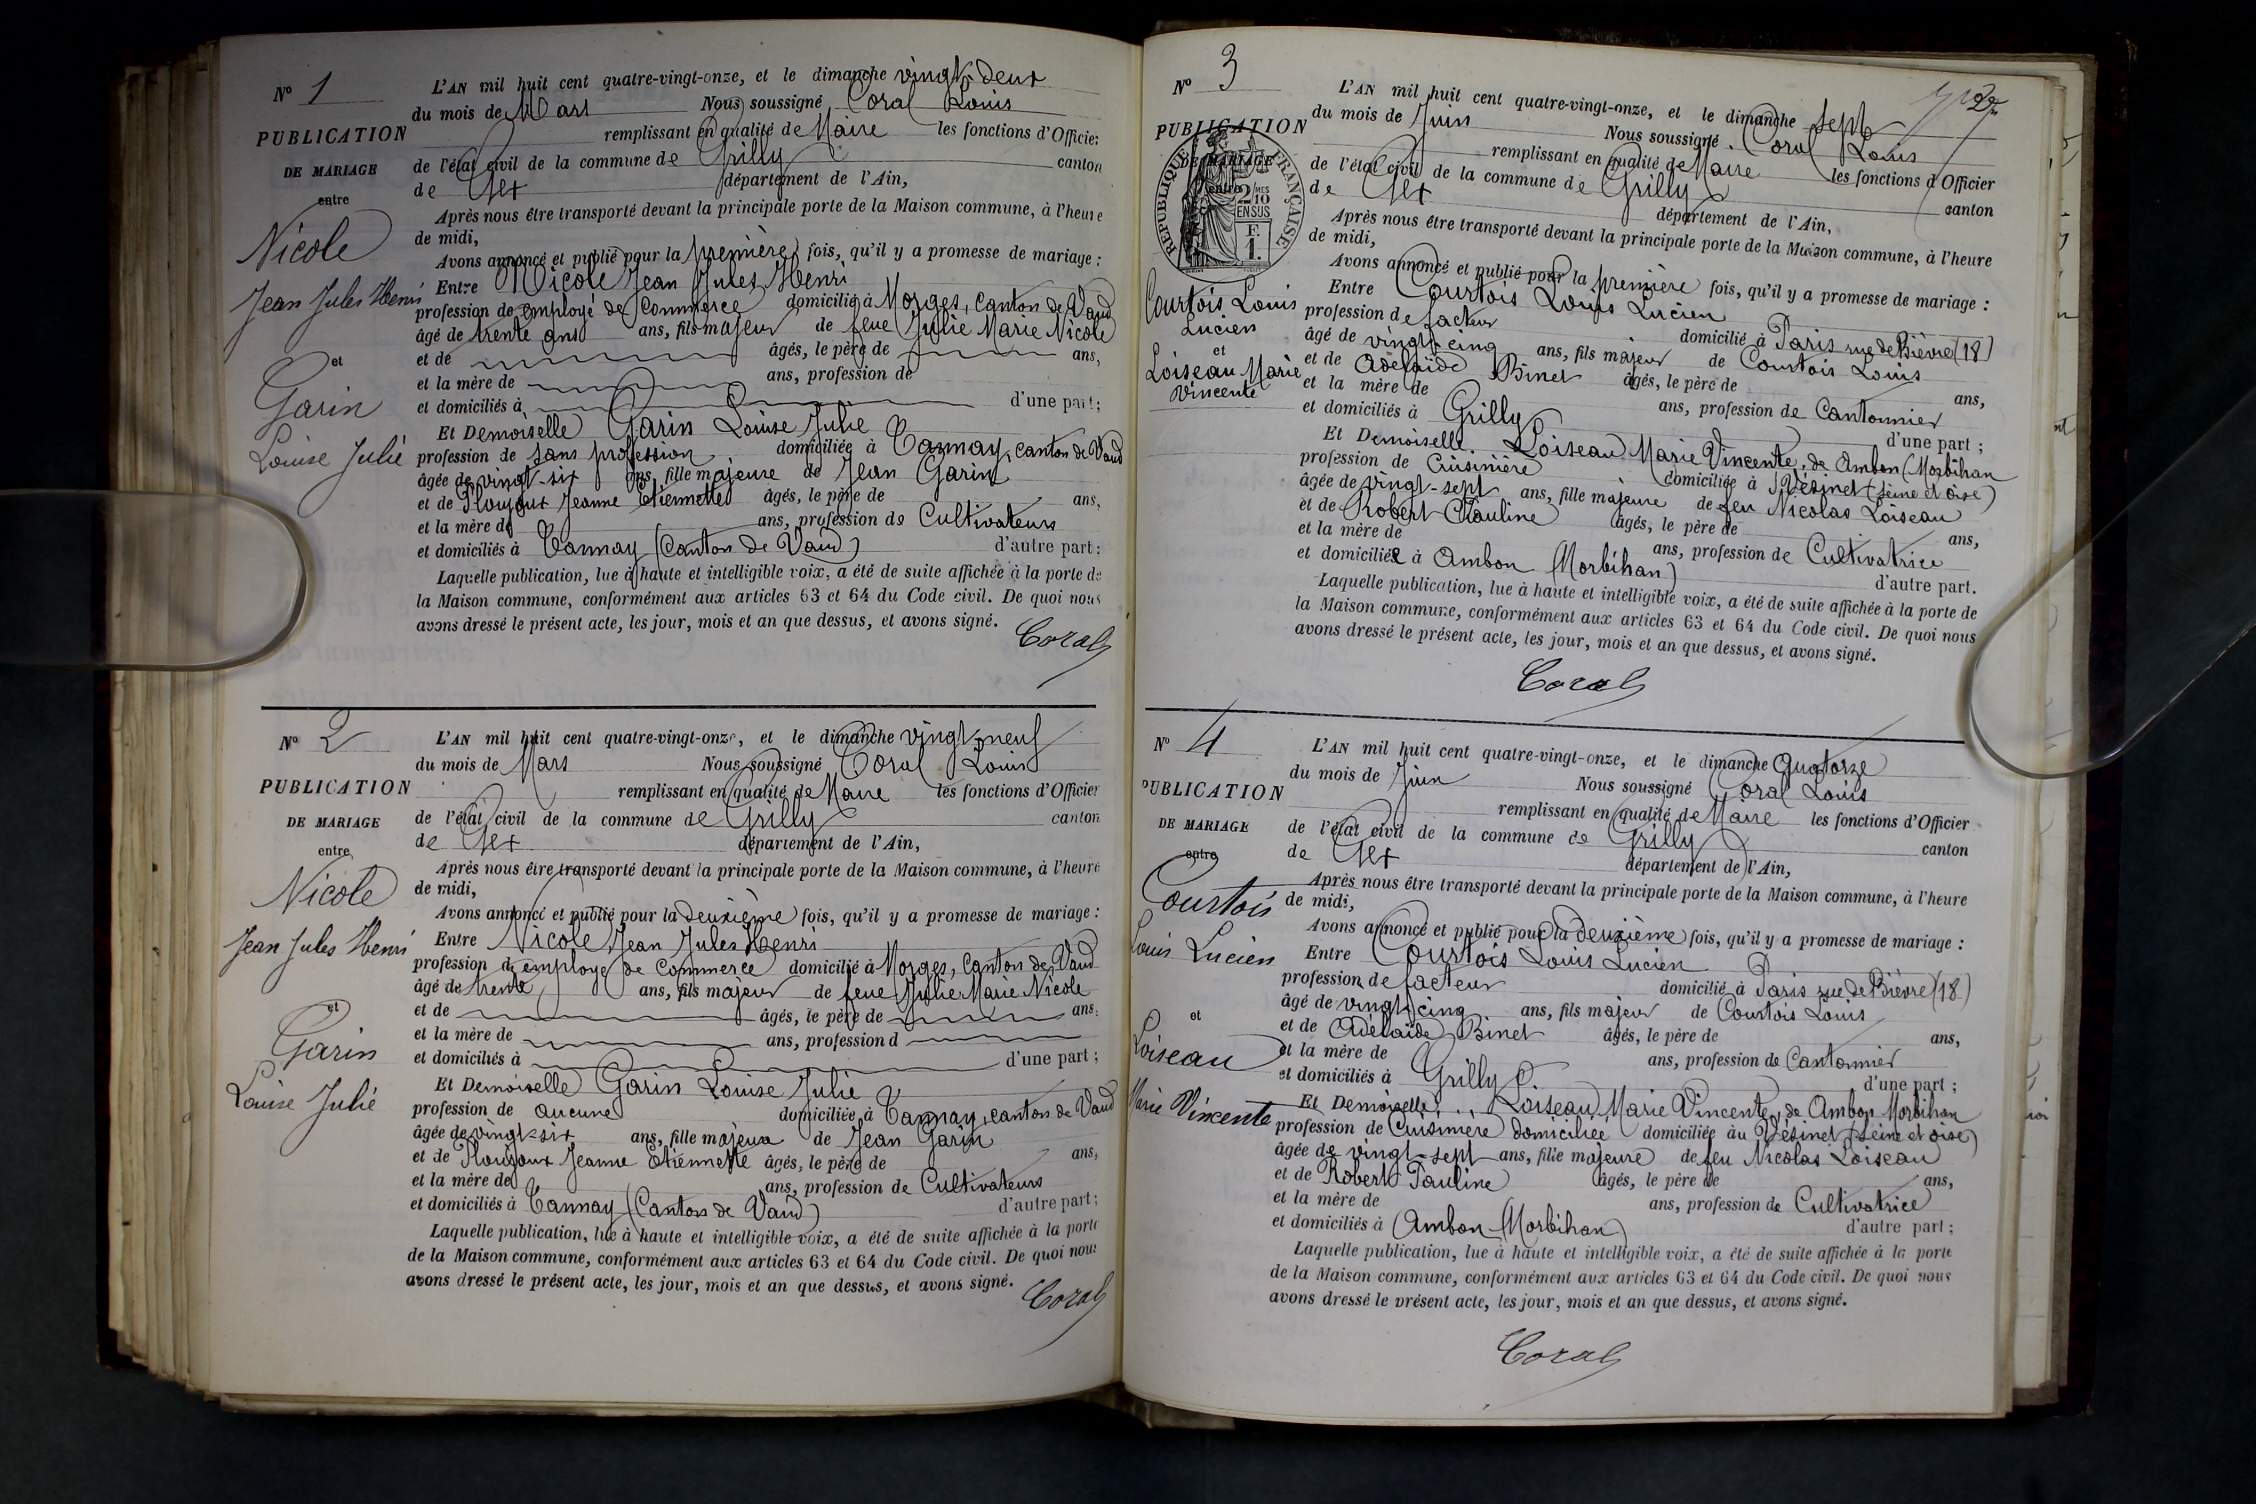 Nº 1
PUBLICATION
DE MARIAGE
entre
Nicole
Jean Jules Henri
et
Garin
Louise Julie
L'AN mil huit cent quatre-vingt-onze, et le dimanche vingt-deux
du mois de Mars Nous soussigné Coral Louis
remplissant en qualité de Maire les fonctions d'Officier
de l'état civil de la commune de Grilly canton
de Gex département de l'Ain,
Après nous être transporté devant la principale porte de la Maison commune, à l'heure
de midi,
Avons annoncé et publié pour la première fois, qu'il y a promesse de mariage :
Entre Nicole Jean Jules Henri
profession de employé de Commerce domicilié à Morges, Canton de Vaud
âgé de trente ans ans, fils majeur de feue Julie Marie Nicole
et de âgés, le père de ans,
et la mère de ans, profession de
et domiciliés à d'une part;
Et Demoiselle Garin Louise Julie
profession de sans profession domiciliée à Tannay, canton de Vaud
âgée de vingt-six ans, fille majeure de Jean Garin
et de Ploujoux Jeanne Etiennette âgés, le père de ans,
et la mère de ans, profession de Cultivateurs
et domiciliés à Tannay (Canton de Vaud) d'autre part:
Laquelle publication, lue à haute et intelligible voix, a été de suite affichée à la porte de
la Maison commune, conformément aux articles 63 et 64 du Code civil. De quoi nous
avons dressé le présent acte, les jour, mois et an que dessus, et avons signé.
Coral
Nº 2
PUBLICATION
DE MARIAGE
entre
Nicole
Jean Jules Henri
et
Garin
Louise Julie
L'AN mil huit cent quatre-vingt-onze, et le dimanche vingt-neuf
du mois de Mars Nous soussigné Coral Louis
remplissant en qualité de Maire les fonctions d'Officier
de l'état civil de la commune de Grilly canton
de Gex département de l'Ain,
Après nous être transporté devant la principale porte de la Maison commune, à l'heure
de midi,
Avons annoncé et publié pour la deuxième fois, qu'il y a promesse de mariage :
Entre Nicole Jean Jules Henri
profession d'employé de commerce domicilié à Morges, Canton de Vaud
âgé de trente ans, fils majeur de feue Julie Marie Nicole
et de âgés, le père de ans,
et la mère de ans, profession d
et domiciliés à d'une part ;
Et Demoiselle Garin Louise Julie
profession de aucune domiciliée à Tannay, canton de Vaud
âgée de vingt-six ans, fille majeure de Jean Garin
et de Ploujoux Jeanne Etiennette âgés, le père de ans,
et la mère de ans, profession de Cultivateurs
et domiciliés à Tannay (Canton de Vaud) d'autre part;
Laquelle publication, lue à haute et intelligible voix, a été de suite affichée à la porte
de la Maison commune, conformément aux articles 63 et 64 du Code civil. De quoi nous
avons dressé le présent acte, les jour, mois et an que dessus, et avons signé.
Coral
Nº 3
PUBLICATION
DE MARIAGE
entre
RÉPUBLIQUE FRANÇAISE
2 MES
10
EN SUS
F.
1.
Courtois Louis
Lucien
et
Loiseau Marie
Vincente
L'AN mil huit cent quatre-vingt-onze, et le dimanche sept
du mois de Juin Nous soussigné Coral Louis
remplissant en qualité de Maire les fonctions d'Officier
de l'état civil de la commune de Grilly canton
de Gex département de l'Ain,
Après nous être transporté devant la principale porte de la Maison commune, à l'heure
de midi,
Avons annoncé et publié pour la première fois, qu'il y a promesse de mariage :
Entre Courtois Louis Lucien
profession de facteur domicilié à Paris rue de Bièvre (18)
âgé de vingt-cinq ans, fils majeur de Courtois Louis
et de Adélaïde Binet âgés, le père de ans,
et la mère de ans, profession de Cantonnier
et domiciliés à Grilly d'une part ;
Et Demoiselle Loiseau Marie Vincente, de Ambon (Morbihan
profession de Cuisinière domiciliée à Vésinet (Seine et oise)
âgée de vingt-sept ans, fille majeure de feu Nicolas Loiseau
et de Robert Pauline âgés, le père de ans,
et la mère de ans, profession de Cultivatrice
et domiciliée à Ambon (Morbihan) d'autre part.
Laquelle publication, lue à haute et intelligible voix, a été de suite affichée à la porte de
la Maison commune, conformément aux articles 63 et 64 du Code civil. De quoi nous
avons dressé le présent acte, les jour, mois et an que dessus, et avons signé.
Coral
Nº 4
PUBLICATION
DE MARIAGE
entre
Courtois
Louis Lucien
et
Loiseau
Marie Vincente
L'AN mil huit cent quatre-vingt-onze, et le dimanche Quatorze
du mois de Juin Nous soussigné Coral Louis
remplissant en qualité de Maire les fonctions d'Officier
de l'état civil de la commune de Grilly canton
de Gex département de l'Ain,
Après nous être transporté devant la principale porte de la Maison commune, à l'heure
de midi,
Avons annoncé et publié pour la deuxième fois, qu'il y a promesse de mariage :
Entre Courtois Louis Lucien
profession de facteur domicilié à Paris rue de Bièvre (18)
âgé de vingt-cinq ans, fils majeur de Courtois Louis
et de Adélaïde Binet âgés, le père de ans,
et la mère de ans, profession de Cantonnier
et domiciliés à Grilly d'une part ;
Et Demoiselle Loiseau Marie Vincente, de Ambon Morbihan
profession de Cuisinière domiciliée domiciliée au Vésinet (Seine et oise)
âgée de vingt-sept ans, fille majeure de feu Nicolas Loiseau
et de Robert Pauline âgés, le père de ans,
et la mère de ans, profession de Cultivatrice
et domiciliés à (Ambon Morbihan) d'autre part;
Laquelle publication, lue à haute et intelligible voix, a été de suite affichée à la porte
de la Maison commune, conformément aux articles 63 et 64 du Code civil. De quoi nous
avons dressé le présent acte, les jour, mois et an que dessus, et avons signé.
Coral